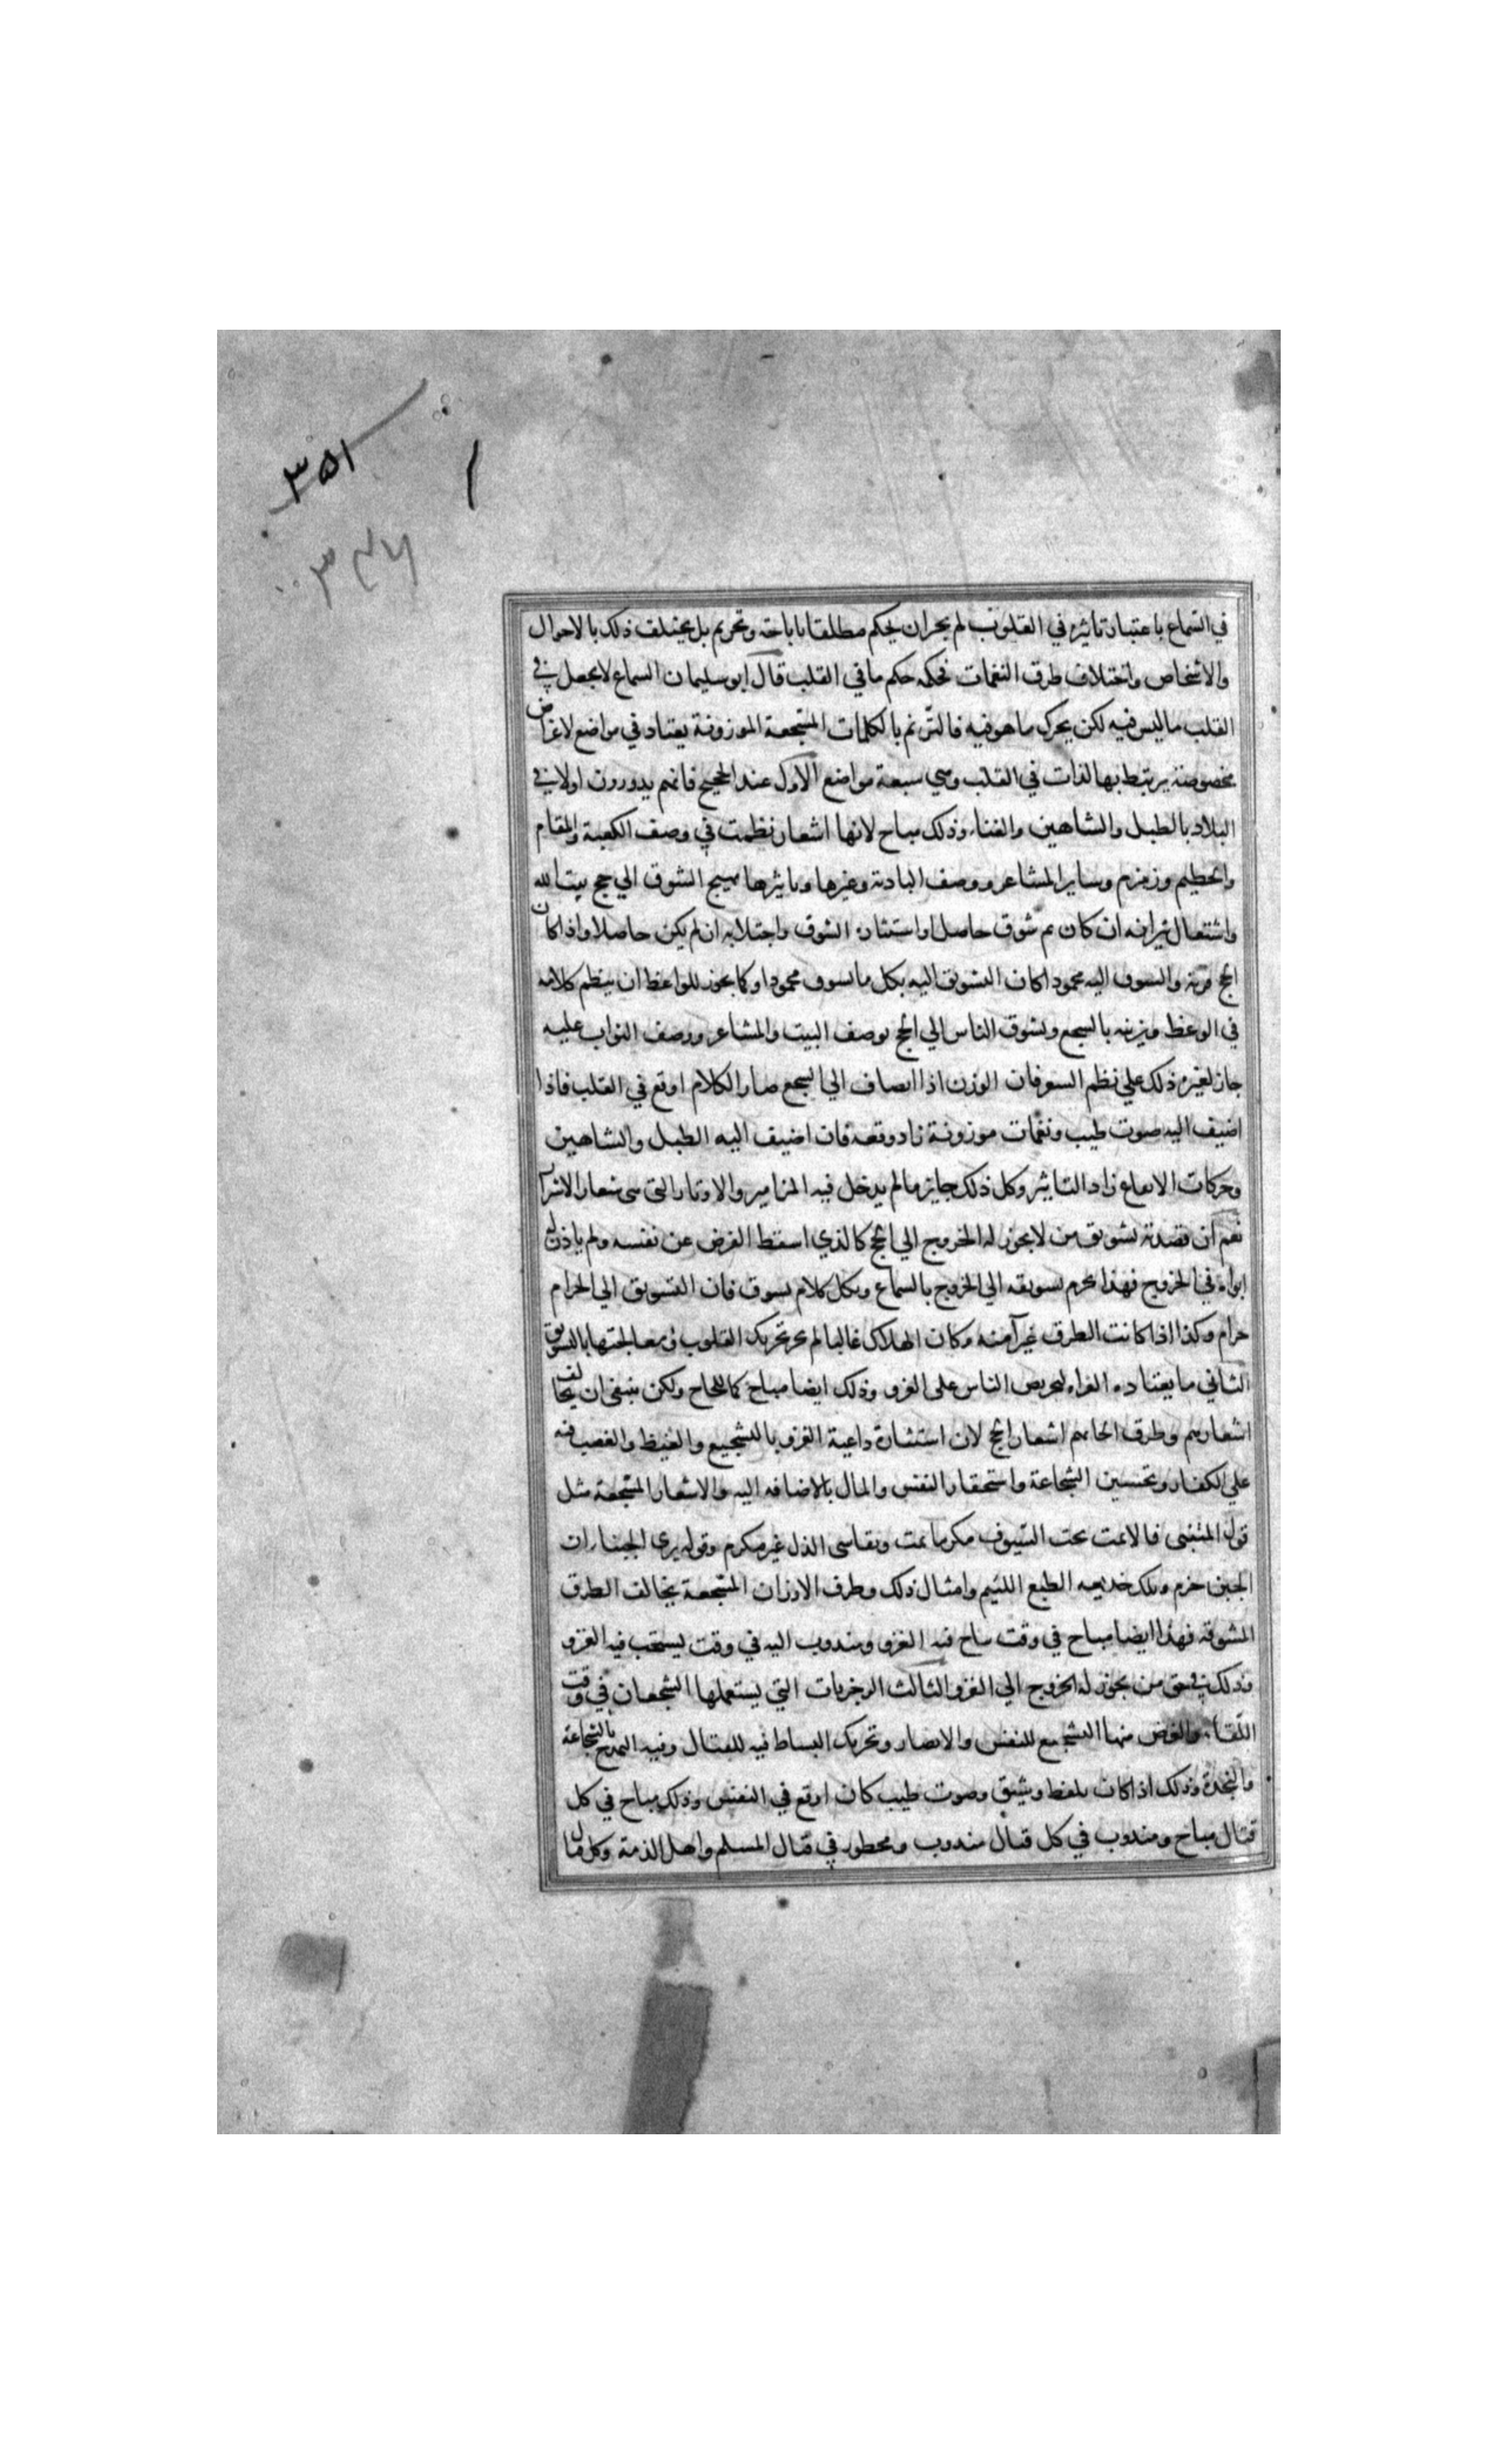 ٣٥١
في السماع باعتبار تاثيره في القلوب لم يجز ان يحكم مطلقا باباحة وتحريم بل يختلف ذلك بالاحوال
والاشخاص واختلاف طرق النغمات فحكمه حكم ما في القلب قال ابو سليمان السماع لا يجعل في
القلب ما ليس فيه لكن يحرك ما هو فيه فالترنم بالكلمات المسجعة الموزونة يعتاد في مواضع لاغراض
مخصوصة يرتبط بها لذات في القلب وهي سبعة مواضع الاول عند الحجيج فانهم يدورون اولا في
البلاد بالطبل والشاهين والغناء وذلك مباح لانها اشعار نظمت في وصف الكعبة والمقام
والحطيم وزمزم وساير المشاعر ووصف البادية وغيرها وتاثيرها تهييج الشوق الي حج بيت الله
واشتعال نيرانه ان كان ثم شوق حاصل او استثارة الشوق واجتلابه ان لم يكن حاصلا واذا كان
الحج قربة والشوق اليه محمودا كان التشويق اليه بكل ما يشوق محمودا وكما يجوز للواعظ ان ينظم كلامه
في الوعظ ويزينه بالسجع ويشوق الناس الي الحج بوصف البيت والمشاعر ووصف الثواب عليه
جاز لغيره ذلك علي نظم الشعر فان الوزن اذا انضاف الي السجع صار الكلام اوقع في القلب فاذا
اضيف اليه صوت طيب ونغمات موزونة زاد وقعه فان اضيف اليه الطبل والشاهين
وحركات الايقاع زاد التاثير وكل ذلك جايز ما لم يدخل فيه المزامير والاوتار التي هي شعار الاشرار
نعم ان قصد به تشويق من لا يجوز له الخروج الي الحج كالذي اسقط الفرض عن نفسه ولم ياذن له
ابواه في الخروج فهذا يحرم تشويقه الي الخروج بالسماع وبكل كلام يشوق فان التشويق الي الحرام
حرام وكذا اذا كانت الطرق غير آمنة وكان الهلاك غالبا لم يجز تحريك القلوب ومعالجتها بالتشويق
الثاني ما يعتاده الغزاة لتحريض الناس على الغزو وذلك ايضا مباح كما للحاج ولكن ينبغي ان يخالف
اشعارهم وطرق الحانهم اشعار الحج لان استثارة داعية الغزو بالتشجيع والغيظ والغضب فيه
علي الكفار وتحسين الشجاعة واستحقار النفس والمال بالاضافه اليه والاشعار المشجعة مثل
قول المتنبي فالا تمت تحت السيوف مكرما تمت وتقاسي الذل غير مكرم وقوله يري الجبنا ان
الجبن حزم وتلك خديعه الطبع اللئيم وامثال ذلك وطرق الاوزان المشجعة يخالف الطرق
المشوقة فهذا ايضا مباح في وقت يباح فيه الغزو ومندوب اليه في وقت يستحب فيه الغزو
وذلك في حق من يجوز له الخروج الي الغزو الثالث الرجزيات التي يستعملها الشجعان في وقت
اللقاء والغرض منها التشجيع للنفس والانصار وتحريك النشاط فيه للقتال وفيه التمدح بالشجاعة
والنجدة وذلك اذا كان بلفظ رشيق وصوت طيب كان اوقع في النفس وذلك مباح في كل
قتال مباح ومندوب في كل قتال مندوب ومحظور في قتال المسلم واهل الذمة وكل قتال